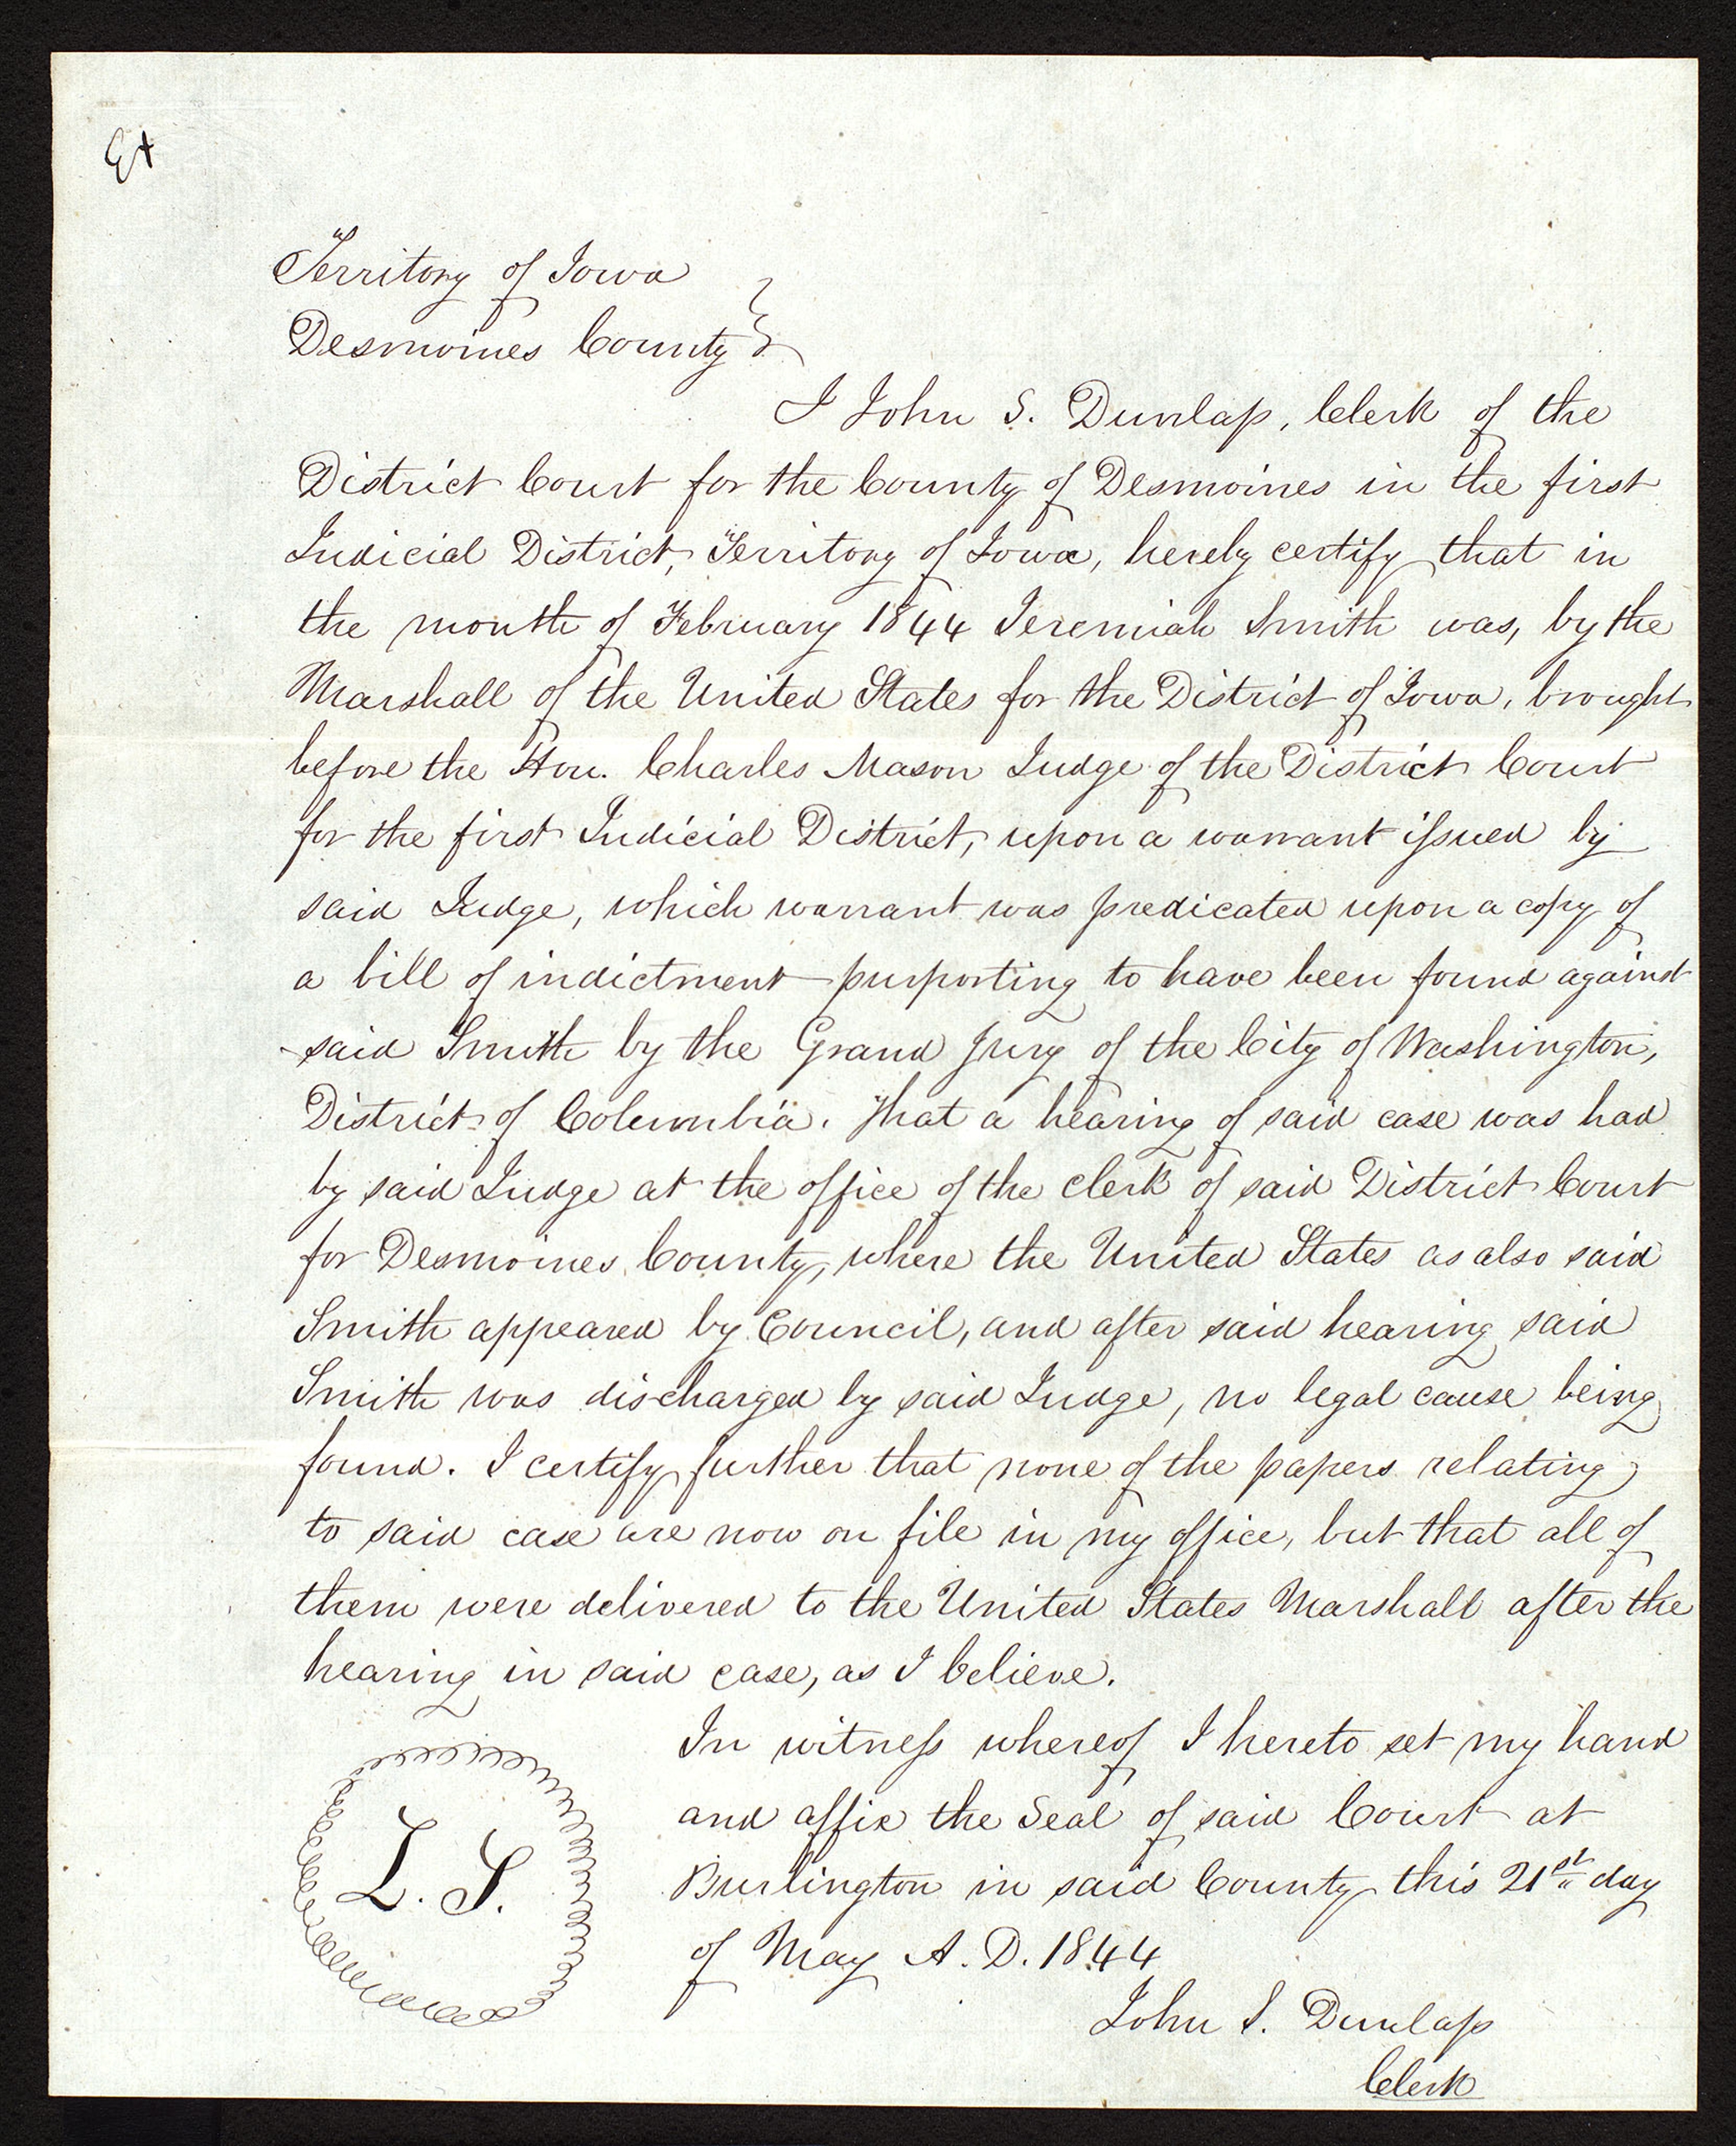 Ex
Territory of Iowa
Desmoines County }
I John S. Dunlap, Clerk of the
District Court for the County of Desmoines in the first
Judicial District, Territory of Iowa, hereby certify that in
the month of February 1844 Jeremiah Smith was, by the
Marshall of the United States for the District of Iowa, brought
before the Hon. Charles Mason Judge of the District Court
for the first Judicial District, upon a warrant issued by
said Judge, which warrant was predicated upon a copy of
a bill of indictment purporting to have been found against
said Smith by the Grand Jury of the City of Washington,
District of Columbia. That a hearing of said case was had
by said Judge at the office of the clerk of said District Court
for Desmoines County, where the United States as also said
Smith appeared by Council, and after said hearing said
Smith was discharged by said Judge, no legal cause being
found. I certify further that none of the papers relating
to said case are now on file in my office, but that all of
them were delivered to the United States Marshall after the
hearing in said case, as I believe.
In witness whereof I hereto set my hand
and affix the Seal of said Court at
Burlington in said County this 21st day
of May A. D. 1844
L. S.
John S. Dunlap
Clerk